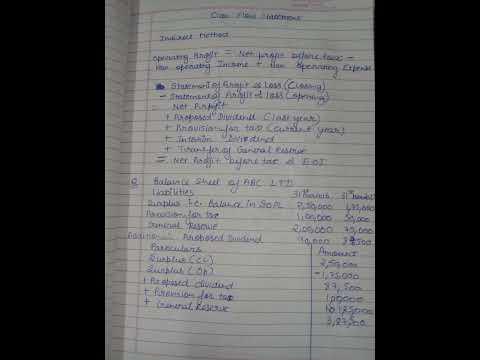 Cash Flow Statement
Indirect Method
Operating Profit = Net profit before tax -
Non operating Income + Non Operating Expense
Statement of Profit & loss (Closing)
- Statement of Profit & loss (opening)
= Net Profit
+ Proposed Dividend (last year)
+ Provision for tax (current year)
+ Interim Dividend
+ Transfer of General Reserve
= Net Profit before tax & EOI
Q Balance Sheet of ABC LTD
Liabilities 31st March 31st March
Surplus i.e. Balance in SOPL 2,50,000 1,75,000
Provision for tax 1,00,000 50,000
General Reserve 2,00,000 75,000
Additional: Proposed Dividend 87,500
Particulars Amount
Surplus (CL) 2,50,000
Surplus (Op) -1,75,000
+ Proposed dividend 87,500
+ Provision for tax 1,00,000
+ General Reserve 1,25,000
3,87,500